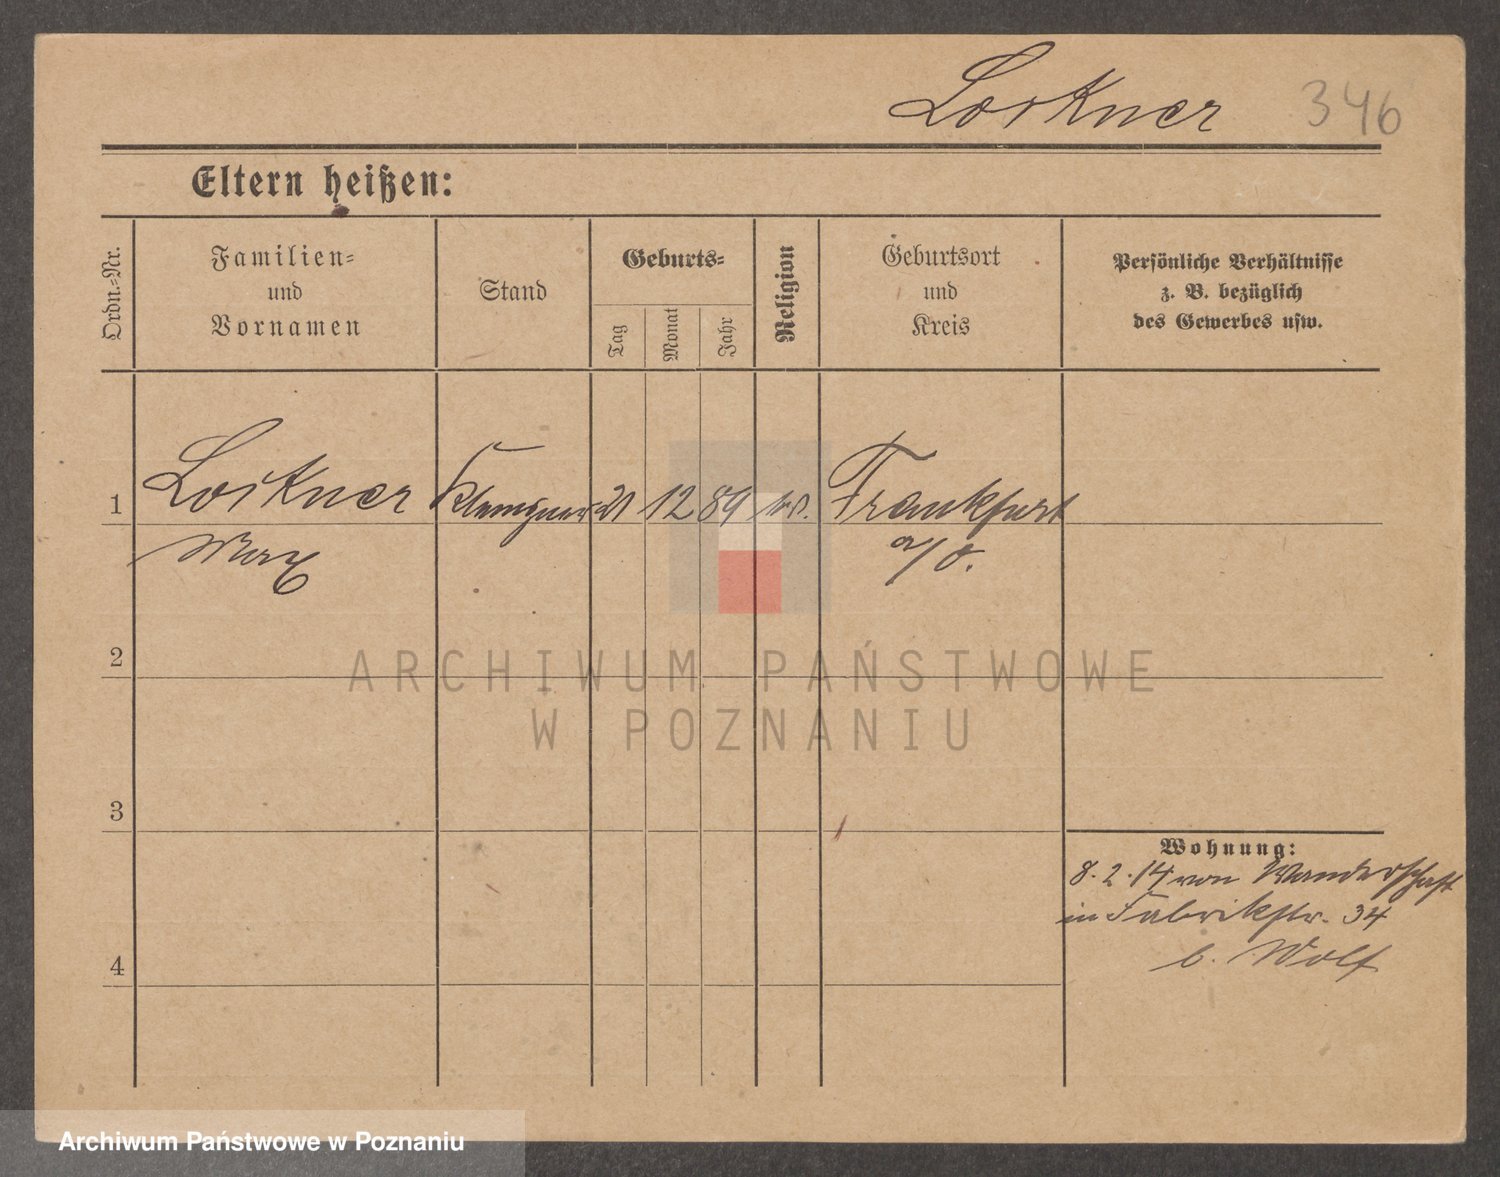 Lorkner 346
Eltern heißen:
Ordn.-Nr.
Familien-
und
Vornamen
Stand
Geburts-
Tag
Monat
Jahr
Religion
Geburtsort
und
Kreis
Persönliche Verhältnisse
z. B. bezüglich
des Gewerbes usw.
1 Lorkner Klempner 21 12 89 Frankfurt
Max a/O.
2
3
4
Wohnung:
8.2.14 von Wanderschaft
in Fabrikstr. 34
b. Wolf
ARCHIWUM PAŃSTWOWE
W POZNANIU
Archiwum Państwowe w Poznaniu